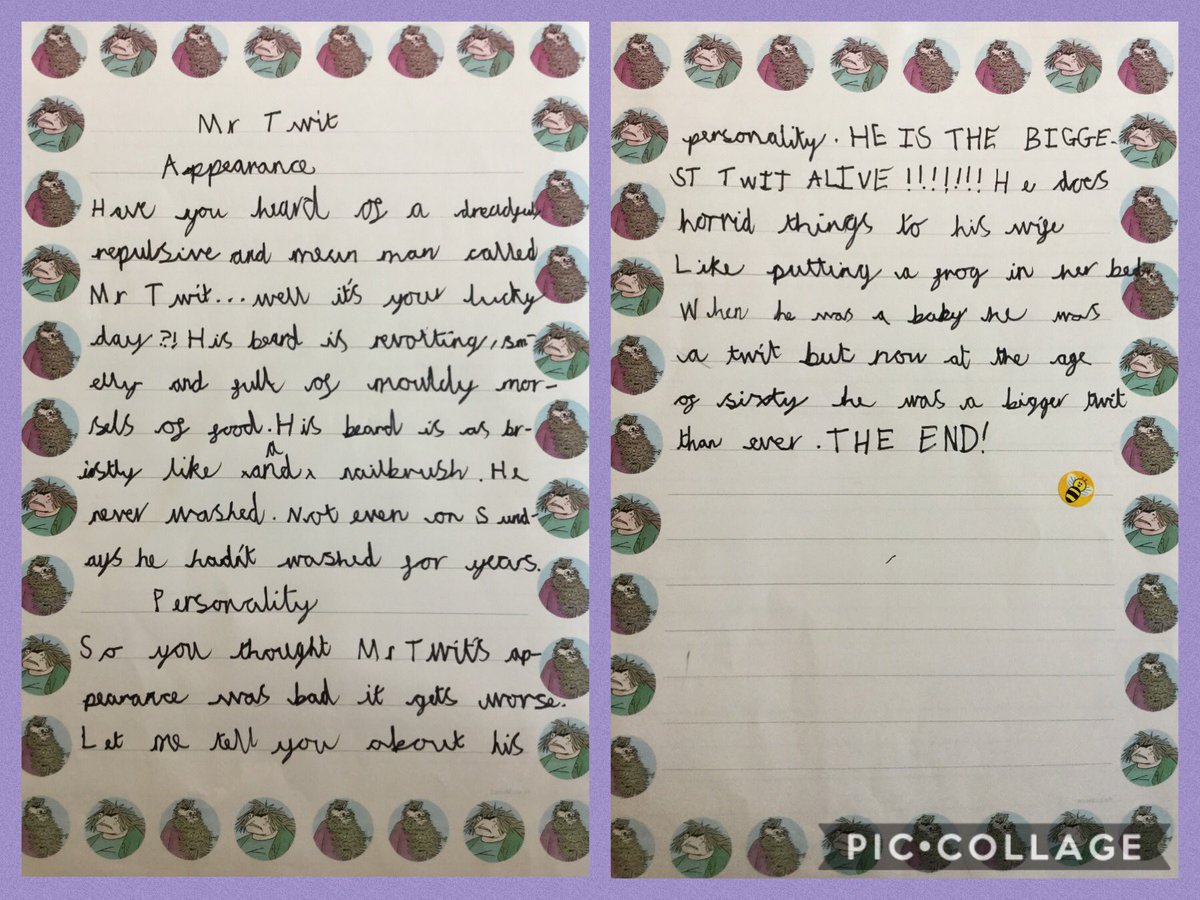 Mr Twit
Appearance
Have you heard of a dreadful
repulsive and mean man called
Mr Twit...well it's your lucky
day?! His beard is revolting, sm-
elly and full of mouldy mor-
sels of food. His beard is as br-
istly like and a nailbrush. He
never washed. Not even on Sund-
ays he hadn't washed for years.
Personality
So you thought Mr Twit's ap-
pearance was bad it gets worse.
Let me tell you about his
personality. HE IS THE BIGGE-
ST TWIT ALIVE !!!!!!!! He does
horrid things to his wife
Like putting a frog in her bed
When he was a baby he was
a twit but now at the age
of sixty he was a bigger twit
than ever. THE END!
PIC•COLLAGE